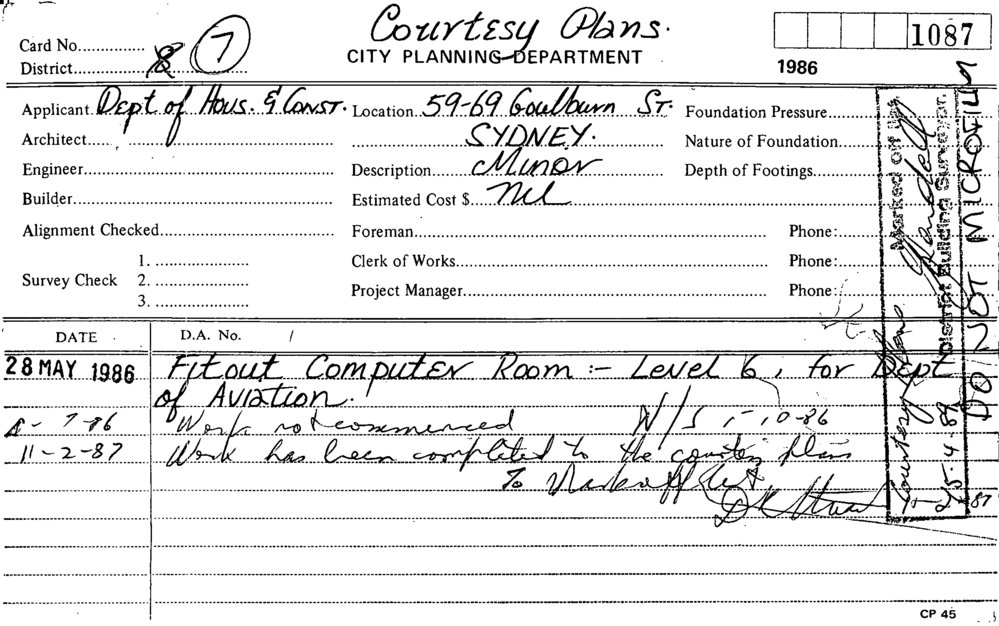 Courtesy Plans.
CITY PLANNING DEPARTMENT
1087
1986
Card No...............
District...............
8 7
Applicant Dept of Hous. & Const.
Architect
Engineer
Builder
Alignment Checked
Survey Check
1.
2.
3.
Location 59-69 Goulburn St.
SYDNEY.
Description Minor
Estimated Cost $ Nil
Foreman
Clerk of Works
Project Manager
Foundation Pressure
Nature of Foundation
Depth of Footings
Phone:
Phone:
Phone:
Marked off the
District Building Surveyor.
Courtesy Plans
DO NOT MICROFILM
DATE
D.A. No. /
28 MAY 1986 Fitout Computer Room :- Level 6, for Dept
of Aviation.
7-86 Work not commenced N/S 10-86
11-2-87 Work has been completed to the courtesy plans
To
CP 45